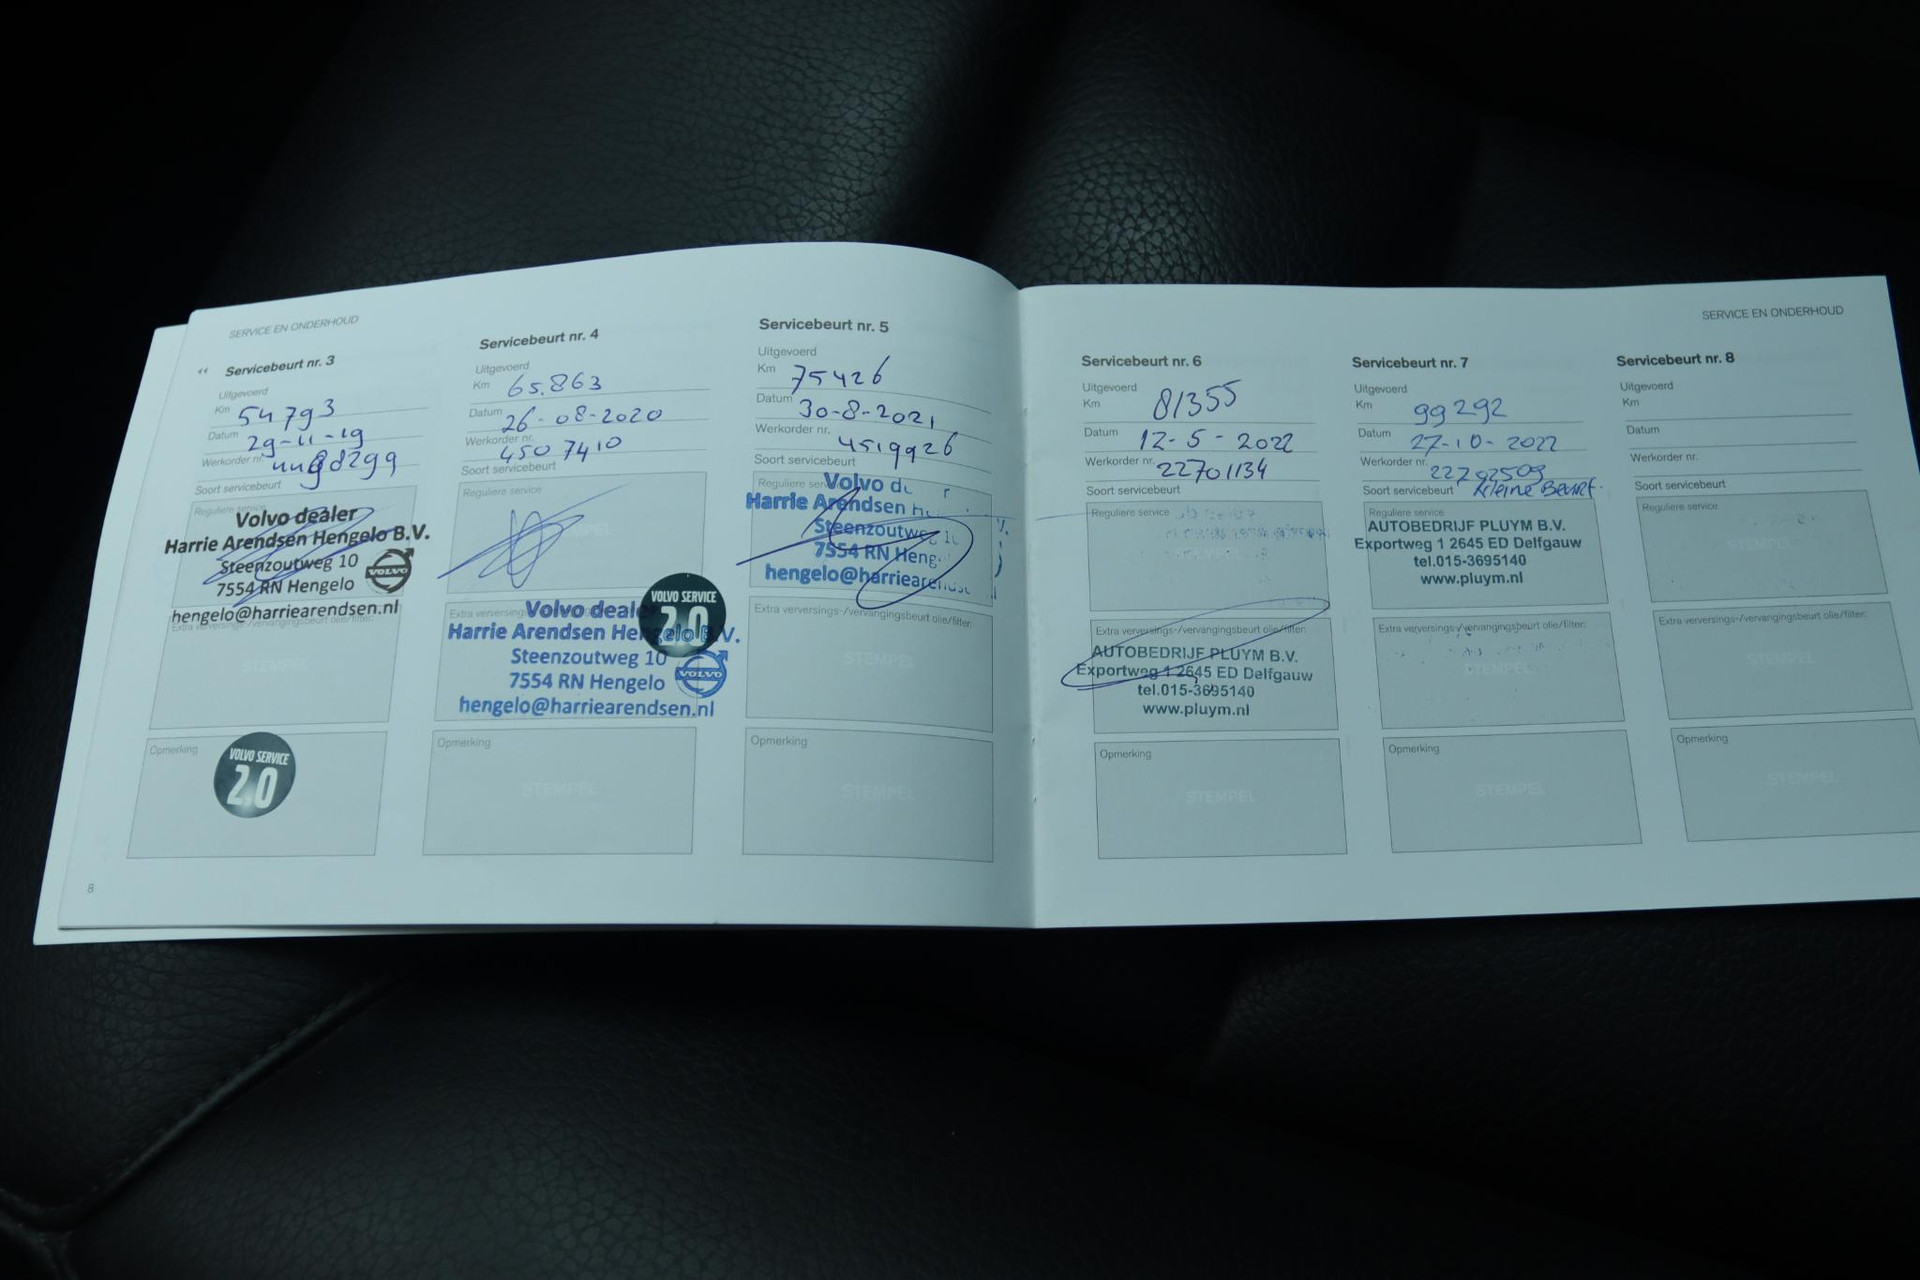 SERVICE EN ONDERHOUD
Servicebeurt nr. 3
Uitgevoerd
Km 54793
Datum 29-11-19
Werkorder nr.
Soort servicebeurt
Reguliere service
Volvo dealer
Harrie Arendsen Hengelo B.V.
Steenzoutweg 10
7554 RN Hengelo
VOLVO
hengelo@harriearendsen.nl
Extra verversings-/vervangingsbeurt olie/filter:
STEMPEL
Opmerking
VOLVO SERVICE
2.0
8
Servicebeurt nr. 4
Uitgevoerd
Km 65.863
Datum 26-08-2020
Werkorder nr. 4507410
Soort servicebeurt
Reguliere service
Extra verversings
Volvo deale
VOLVO SERVICE
2.0
Harrie Arendsen Hengelo B.V.
Steenzoutweg 10
7554 RN Hengelo
VOLVO
hengelo@harriearendsen.nl
Opmerking
STEMPEL
Servicebeurt nr. 5
Uitgevoerd
Km 75426
Datum 30-8-2021
Werkorder nr. 4519926
Soort servicebeurt
Reguliere ser
Volvo d
Harrie Arendsen H
Steenzoutweg 10
7554 RN Heng
hengelo@harriearendse
Extra verversings-/vervangingsbeurt olie/filter:
STEMPEL
Opmerking
STEMPEL
SERVICE EN ONDERHOUD
Servicebeurt nr. 6
Uitgevoerd
Km 81355
Datum 12-5-2022
Werkorder nr. 22701134
Soort servicebeurt
Reguliere service
Extra verversings-/vervangingsbeurt olie/filter:
AUTOBEDRIJF PLUYM B.V.
Exportweg 1 2645 ED Delfgauw
tel.015-3695140
www.pluym.nl
Opmerking
STEMPEL
Servicebeurt nr. 7
Uitgevoerd
Km 99292
Datum 27-10-2022
Werkorder nr. 22702509
Soort servicebeurt Kleine Beurt.
Reguliere service
AUTOBEDRIJF PLUYM B.V.
Exportweg 1 2645 ED Delfgauw
tel.015-3695140
www.pluym.nl
Extra verversings-/vervangingsbeurt olie/filter:
STEMPEL
Opmerking
STEMPEL
Servicebeurt nr. 8
Uitgevoerd
Km
Datum
Werkorder nr.
Soort servicebeurt
Reguliere service
STEMPEL
Extra verversings-/vervangingsbeurt olie/filter:
STEMPEL
Opmerking
STEMPEL